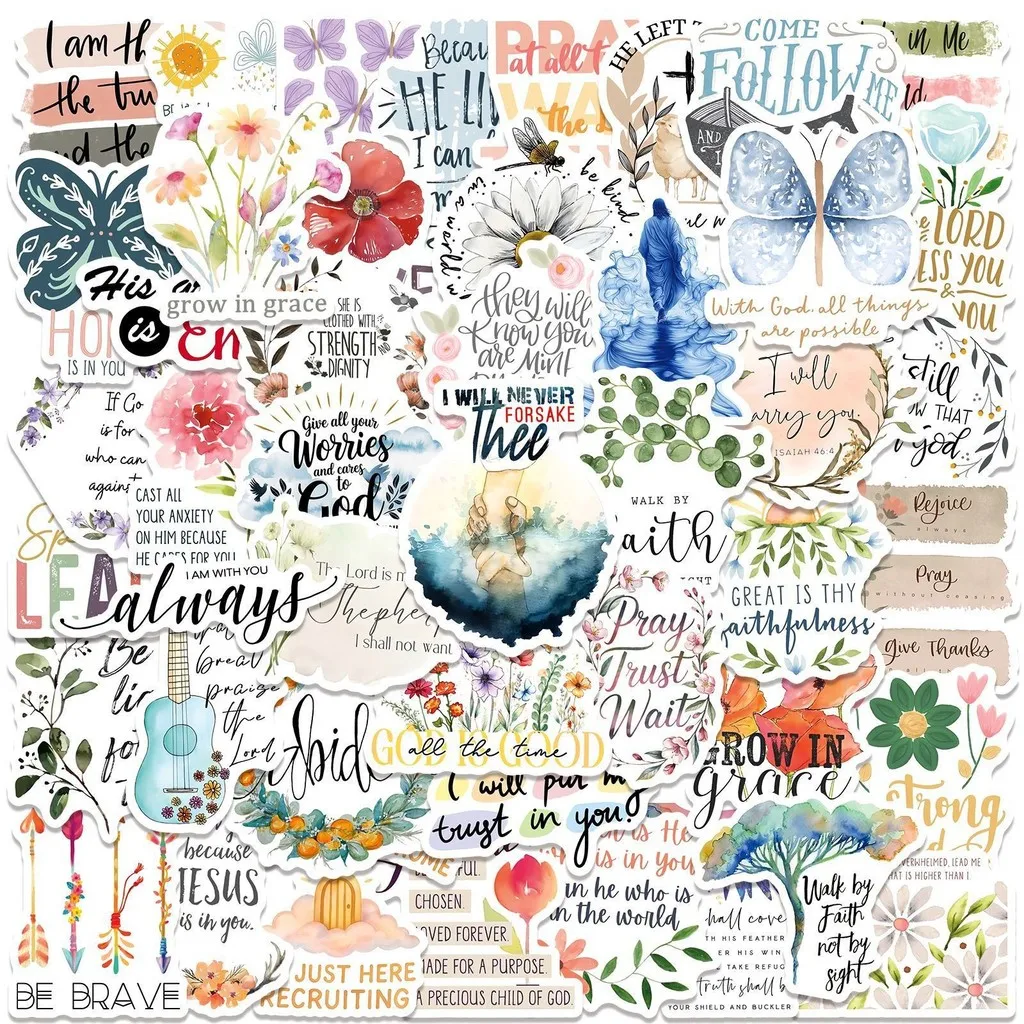 I am th
the tru
d the
Becau
HE LI
I can
PRA
at all t
WA
the L
HE LEFT
COME
FOLLOW ME
AND
I
in Me
be kind
in a world
LORD
ESS YOU
&
YOU
His
is
grow in grace
HO
IS IN YOU
SHE IS
CLOTHED WITH
STRENGTH
DIGNITY
they will
know you
are MINE
With God, all things
are possible
I WILL NEVER
FORSAKE
Thee
I will
carry you.
ISAIAH 46:4
still
THAT
God
If Go
is for
who can
against
Give all your
Worries
and cares
to
God
CAST ALL
YOUR ANXIETY
ON HIM BECAUSE
HE CARES FOR YOU
I AM WITH YOU
always
LEA
The Lord is m
Shepher
I shall not want
WALK BY
faith
Rejoice
always
Pray
without ceasing
Give Thanks
GREAT IS THY
faithfulness
Pray
Trust
Wait
Be
breat
praise
the
Lord
Abid
GOD IS GOOD
all the time
I will put m
trust in you?
GROW IN
grace
strong
BE BRAVE
because
JESUS
is in you.
JUST HERE
RECRUITING
CHOSEN.
LOVED FOREVER.
MADE FOR A PURPOSE.
A PRECIOUS CHILD OF GOD.
is He
is in you
an he who is
in the world
hall cove
TH HIS FEATHER
ER HIS WIN
TAKE REFUG
truth shall b
YOUR SHIELD AND BUCKLER
Walk by
Faith
not by
sight
OVERWHELMED, LEAD ME
HAT IS HIGHER THAN I.